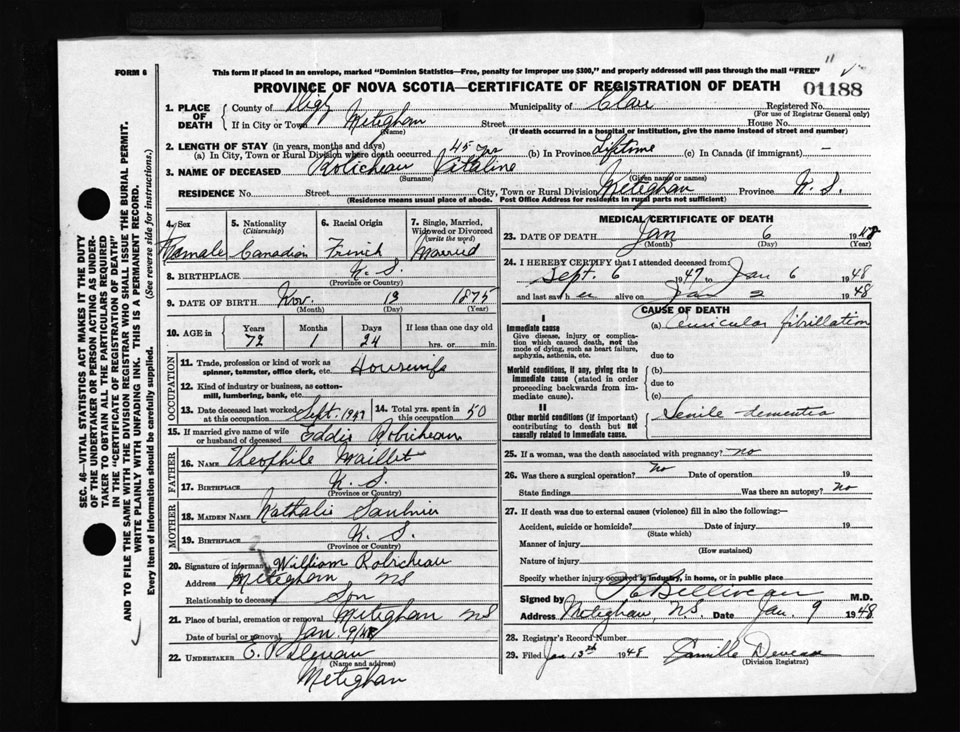 FORM 6
This form if placed in an envelope, marked "Dominion Statistics—Free, penalty for improper use $300," and properly addressed will pass through the mail "FREE"
PROVINCE OF NOVA SCOTIA—CERTIFICATE OF REGISTRATION OF DEATH
01188
1. PLACE OF DEATH
County of Digby Municipality of Clare Registered No.
(For use of Registrar General only)
If in City or Town Meteghan Street House No.
(Name) (If death occurred in a hospital or institution, give the name instead of street and number)
2. LENGTH OF STAY (in years, months and days)
(a) In City, Town or Rural Division where death occurred 45 yrs (b) In Province Lifetime (c) In Canada (if immigrant) —
3. NAME OF DECEASED Robicheau Vitaline
(Surname) (Given name or names)
RESIDENCE No. Street City, Town or Rural Division Meteghan Province N. S.
(Residence means usual place of abode. Post Office Address for residents in rural parts not sufficient)
4. Sex Female
5. Nationality (Citizenship) Canadian
6. Racial Origin French
7. Single, Married, Widowed or Divorced (write the word) Married
8. BIRTHPLACE N. S.
(Province or Country)
9. DATE OF BIRTH Nov. 13 1875
(Month) (Day) (Year)
10. AGE in Years 72 Months 1 Days 24 If less than one day old hrs. or min.
OCCUPATION
11. Trade, profession or kind of work as spinner, teamster, office clerk, etc. Housewife
12. Kind of industry or business, as cotton-mill, lumbering, bank, etc.
13. Date deceased last worked at this occupation Sept. 1947
14. Total yrs. spent in this occupation 50
15. If married give name of wife or husband of deceased Eddie Robicheau
FATHER
16. NAME Theophile Maillet
17. BIRTHPLACE N. S.
(Province or Country)
MOTHER
18. MAIDEN NAME Nathalie Saulnier
19. BIRTHPLACE N. S.
(Province or Country)
20. Signature of informant William Robicheau
Address Meteghan NS
Relationship to deceased Son
21. Place of burial, cremation or removal Meteghan NS
Date of burial or removal Jan. 9/48
22. UNDERTAKER E.
(Name and address)
Meteghan
MEDICAL CERTIFICATE OF DEATH
23. DATE OF DEATH Jan 6 1948
(Month) (Day) (Year)
24. I HEREBY CERTIFY that I attended deceased from:
Sept. 6 1947 to Jan 6 1948
and last saw her alive on Jan 2 1948
CAUSE OF DEATH
I
Immediate cause
Give disease, injury or complication which caused death, not the mode of dying, such as heart failure, asphyxia, asthenia, etc.
(a) auricular fibrillation
due to
Morbid conditions, if any, giving rise to immediate cause (stated in order proceeding backwards from immediate cause).
(b)
due to
(c)
II
Other morbid conditions (if important) contributing to death but not causally related to immediate cause.
Senile dementia
25. If a woman, was the death associated with pregnancy? no
26. Was there a surgical operation? No Date of operation 19
State findings Was there an autopsy? No
27. If death was due to external causes (violence) fill in also the following:—
Accident, suicide or homicide? Date of injury 19
(State which)
Manner of injury
(How sustained)
Nature of injury
Specify whether injury occurred in industry, in home, or in public place
Signed by Belliveau M.D.
Address Meteghan, N.S. Date Jan. 9 1948
28. Registrar's Record Number
29. Filed Jan 13th 1948 Camille Deveau
(Division Registrar)
SEC. 46—VITAL STATISTICS ACT MAKES IT THE DUTY
OF THE UNDERTAKER OR PERSON ACTING AS UNDER-
TAKER TO OBTAIN ALL THE PARTICULARS REQUIRED
IN THE "CERTIFICATE OF REGISTRATION OF DEATH"
AND TO FILE THE SAME WITH THE DIVISION REGISTRAR WHO SHALL ISSUE THE BURIAL PERMIT.
WRITE PLAINLY WITH UNFADING INK. THIS IS A PERMANENT RECORD.
Every item of information should be carefully supplied. (See reverse side for instructions.)